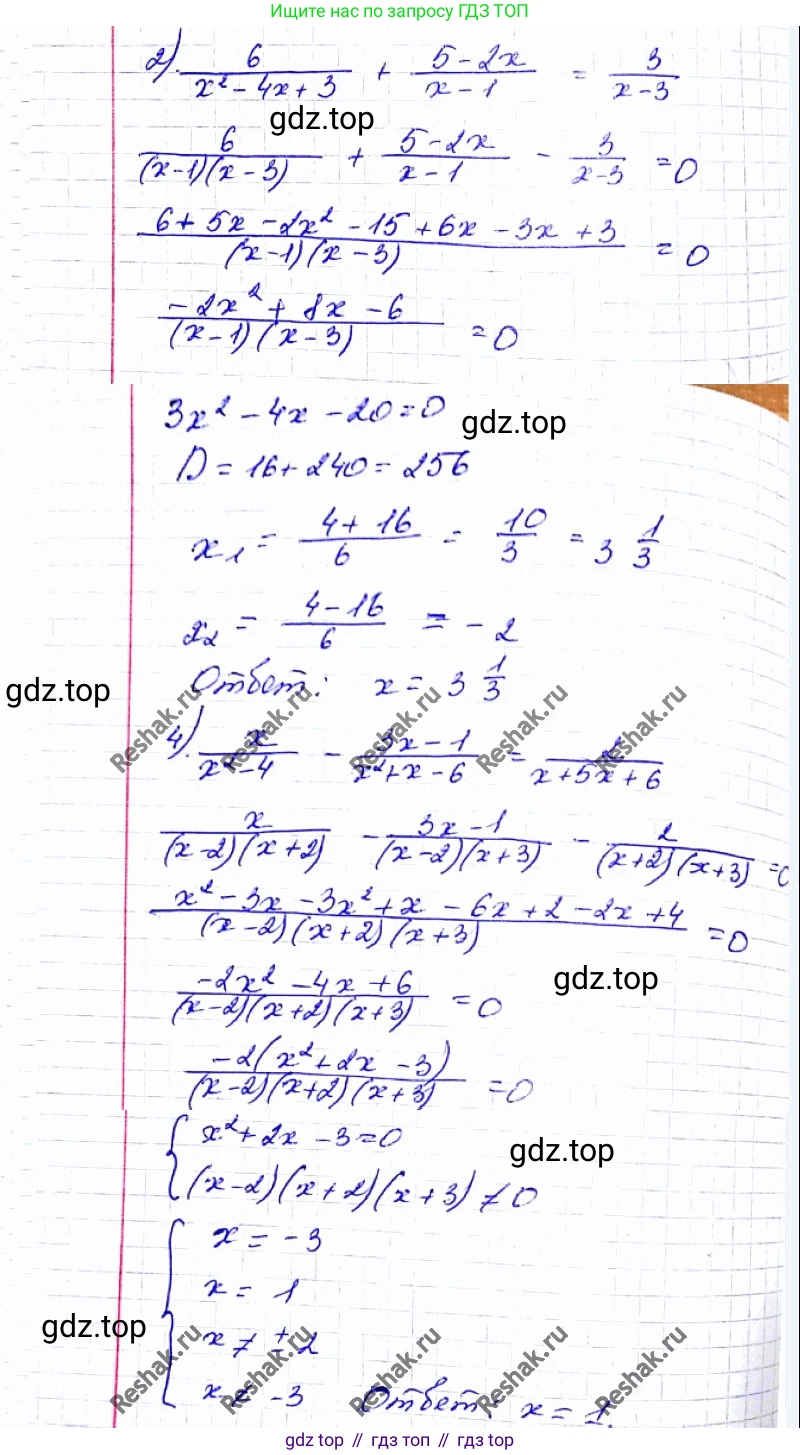 Ищите нас по запросу ГДЗ ТОП
2) 6/(x² - 4x + 3) + (5 - 2x)/(x - 1) = 3/(x - 3)
gdz.top
6/((x-1)(x-3)) + (5 - 2x)/(x - 1) - 3/(x-3) = 0
(6 + 5x - 2x² - 15 + 6x - 3x + 3)/((x-1)(x-3)) = 0
(-2x² + 8x - 6)/((x-1)(x-3)) = 0
3x² - 4x - 20 = 0
gdz.top
D = 16 + 240 = 256
x₁ = (4 + 16)/6 = 10/3 = 3 1/3
x₂ = (4 - 16)/6 = - 2
gdz.top
Ответ: x = 3 1/3
Reshak.ru Reshak.ru Reshak.ru Reshak.ru
4) x/(x² - 4) - (3x - 1)/(x² + x - 6) = /(x + 5x + 6)
x/((x-2)(x+2)) - (3x - 1)/((x-2)(x+3)) - 2/((x+2)(x+3)) = 0
(x² - 3x - 3x² + x - 6x + 2 - 2x + 4)/((x-2)(x+2)(x+3)) = 0
gdz.top
(-2x² - 4x + 6)/((x-2)(x+2)(x+3)) = 0
(-2(x² + 2x - 3))/((x-2)(x+2)(x+3)) = 0
{ x² + 2x - 3 = 0
gdz.top
(x-2)(x+2)(x+3) ≠ 0
{ x = -3
x = 1
gdz.top
x ≠ ± 2
x ≠ -3 Ответ: x = 1.
Reshak.ru Reshak.ru Reshak.ru Reshak.ru
gdz.top // гдз топ // gdz top